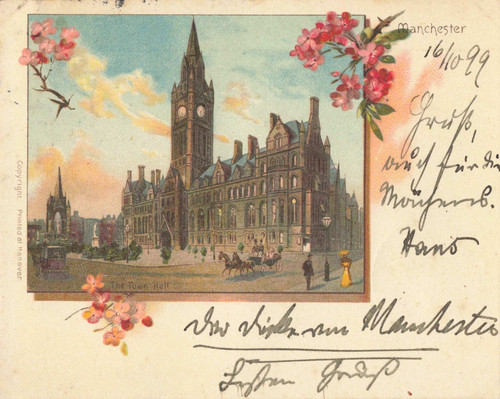 Manchester
16/10 99
Gruß,
auch für die
Hans
The Town Hall
Copyright. Printed at Hanover
Der Dicke von Manchester
Besten Gruß